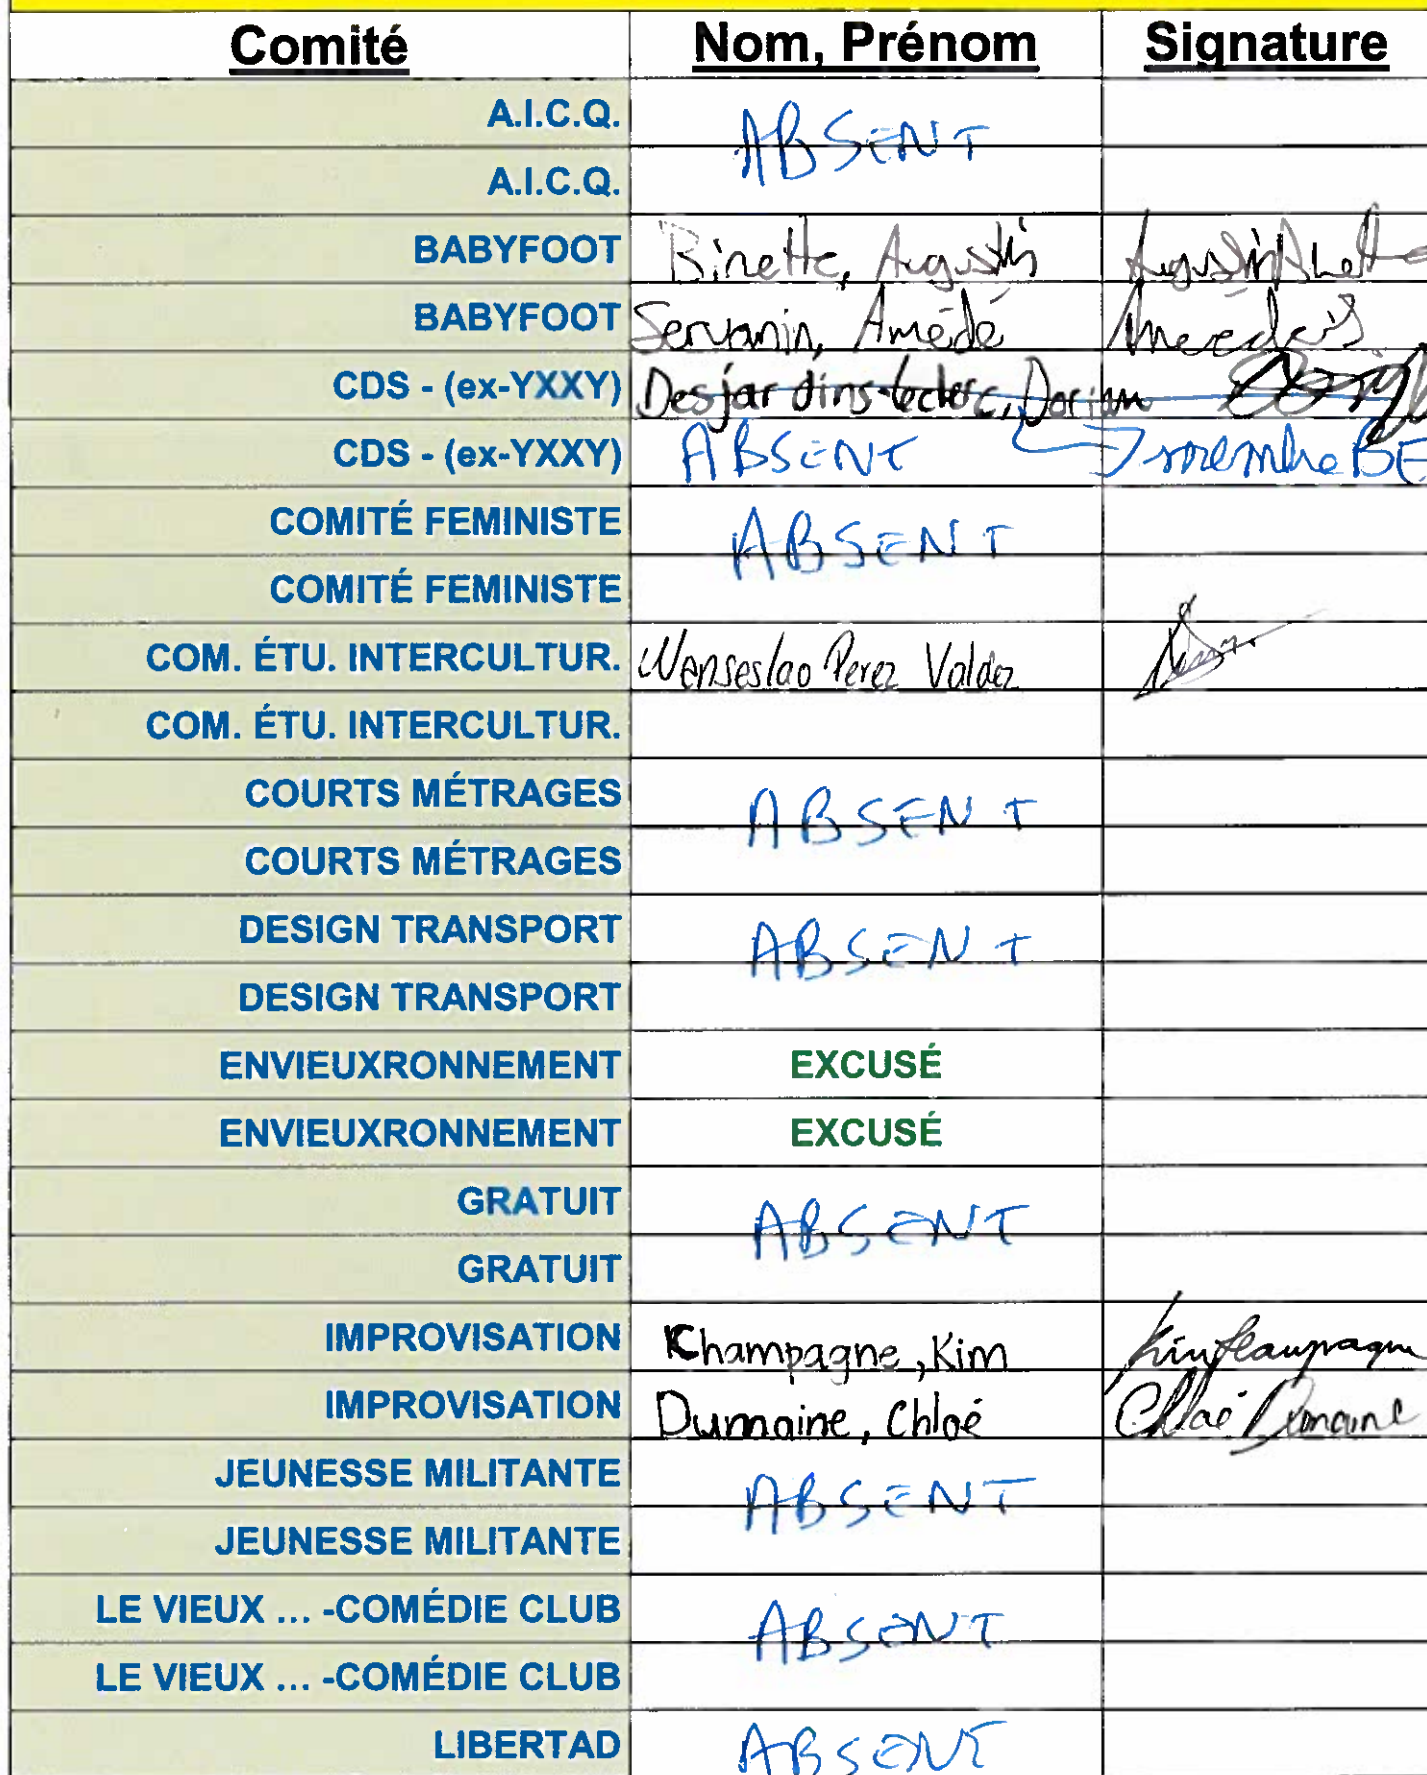 Comité Nom, Prénom Signature
A.I.C.Q. ABSENT
A.I.C.Q.
BABYFOOT Binette, Augustin
BABYFOOT Servanin, Amédé
CDS - (ex-YXXY) Desjardins-Leclerc, Dorian
CDS - (ex-YXXY) ABSENT membre BE
COMITÉ FEMINISTE ABSENT
COMITÉ FEMINISTE
COM. ÉTU. INTERCULTUR. Wenseslao Perez Valdez
COM. ÉTU. INTERCULTUR.
COURTS MÉTRAGES ABSENT
COURTS MÉTRAGES
DESIGN TRANSPORT ABSENT
DESIGN TRANSPORT
ENVIEUXRONNEMENT EXCUSÉ
ENVIEUXRONNEMENT EXCUSÉ
GRATUIT ABSENT
GRATUIT
IMPROVISATION Champagne, Kim Kim Champagne
IMPROVISATION Dumaine, Chloé Chloé Dumaine
JEUNESSE MILITANTE ABSENT
JEUNESSE MILITANTE
LE VIEUX ... -COMÉDIE CLUB ABSENT
LE VIEUX ... -COMÉDIE CLUB
LIBERTAD ABSENT